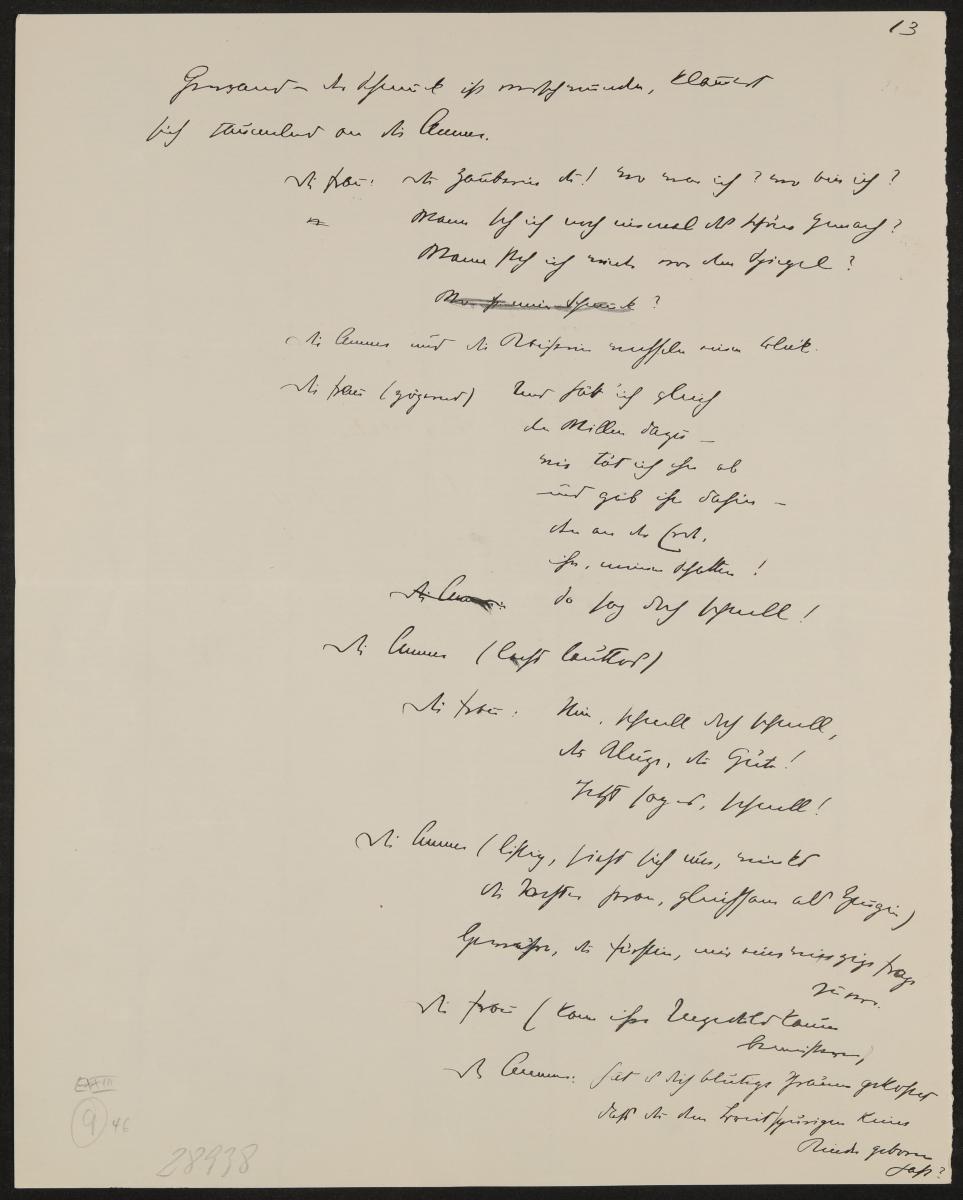 13
Gewand – der Schmuck ist verschwunden, klammert
sich taumelnd an die Amme.
die Frau: die Zauberin du! wo war ich? wo bin ich?
Wann seh ich noch einmal das schöne Gemach?
Wann steh ich wieder vor dem Spiegel?
Wo ist mein Schmuck?
die Amme und die Kaiserin wechseln einen Blick.
die Frau (zögernd) Und hätt ich gleich
den Willen dazu –
wie tät ich ihn ab
und gäb ihn dahin –
den an der Erd,
ihn, meinen Schatten!
die Amme: da sag doch schnell!
die Amme (lacht lautlos)
die Frau: Nun, schnell doch schnell,
du Kluge, du Gute!
Jetzt sag es, schnell!
die Amme (listig, sieht sich um, winkt
die heran, gleichsam als Zeugin)
Gewähre, du Fürstin, mir eine winzige Frage
zuvor.
die Frau (kann ihre Ungeduld kaum
bemeistern)
die Amme: hat es dich blutige Thränen gekostet
dass du dem Breitspurigen keine
Kinder geboren
hast?
9 46
28938